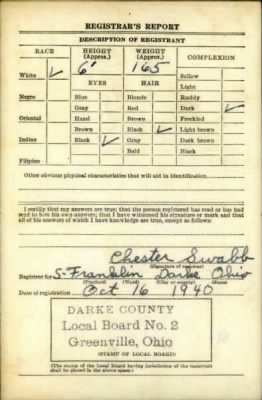 REGISTRAR'S REPORT
DESCRIPTION OF REGISTRANT
RACE HEIGHT (Approx.) WEIGHT (Approx.) COMPLEXION
White ✓ 6' 165 Sallow
EYES HAIR Light
Negro Blue Blonde Ruddy
Gray Red Dark ✓
Oriental Hazel Brown Freckled
Brown Black ✓ Light brown
Indian Black ✓ Gray Dark brown
Bald Black
Filipino
Other obvious physical characteristics that will aid in identification
I certify that my answers are true; that the person registered has read or has had
read to him his own answers; that I have witnessed his signature or mark and that
all of his answers of which I have knowledge are true, except as follows:
Chester Swabb
(Signature of registrar)
Registrar for S. Franklin Darke Ohio
(Precinct) (Ward) (City or county) (State)
Date of registration Oct 16 1940
DARKE COUNTY
Local Board No. 2
Greenville, Ohio
(STAMP OF LOCAL BOARD)
(The stamp of the Local Board having jurisdiction of the registrant
shall be placed in the above space.)